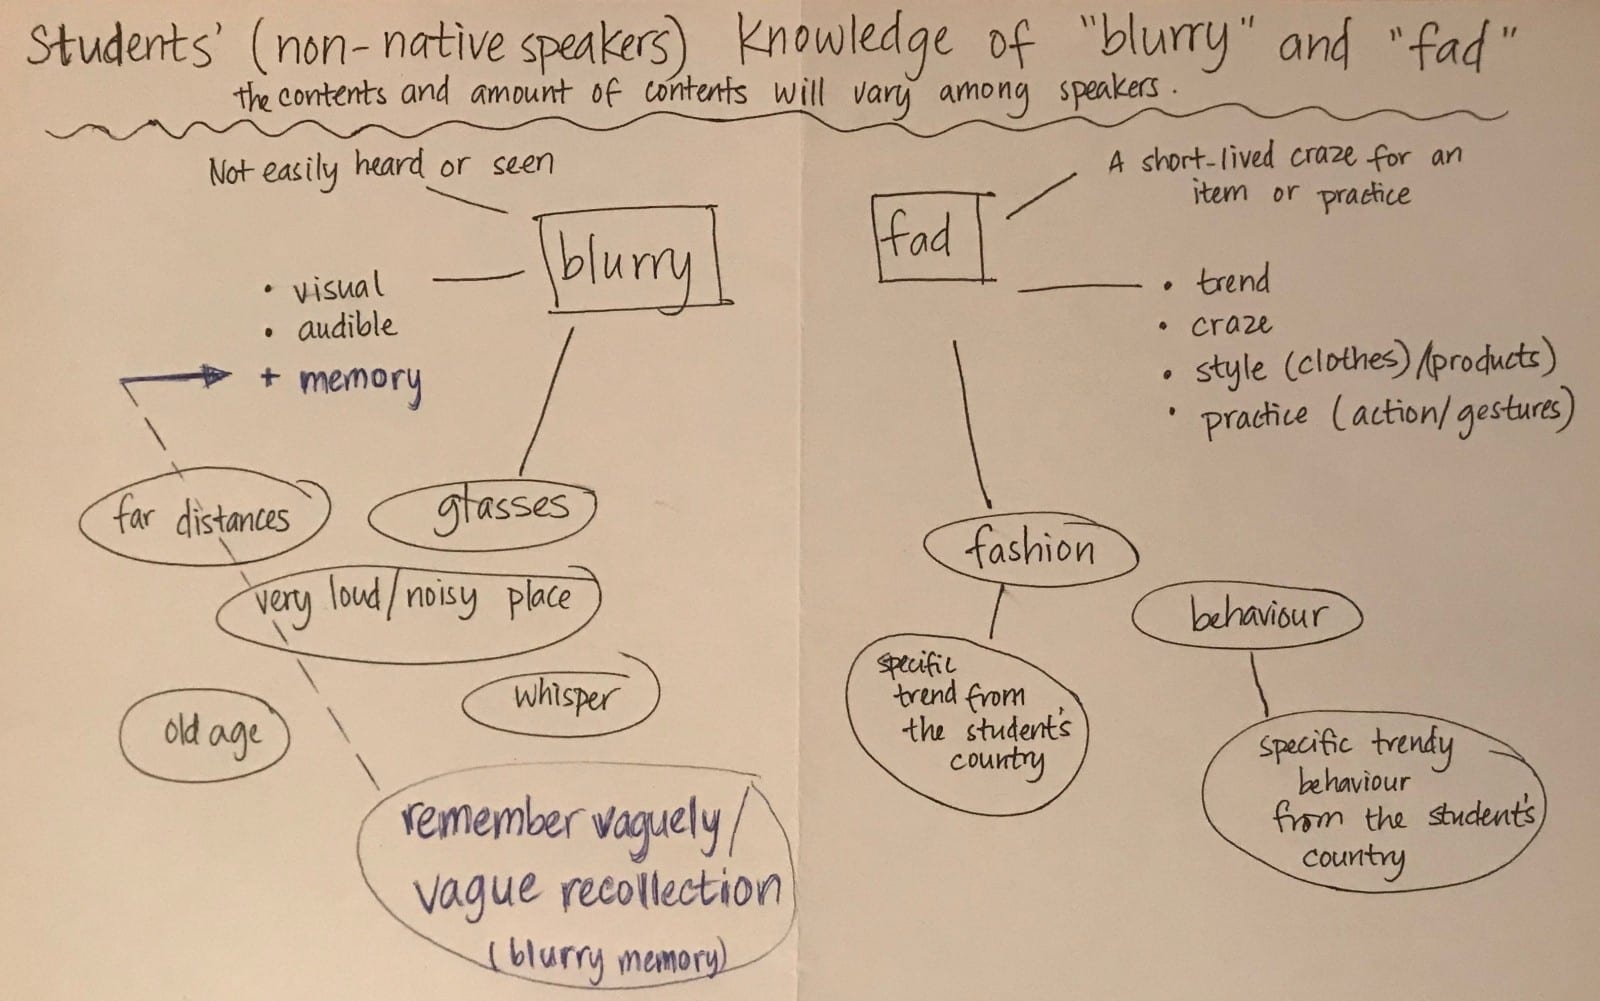 Students' (non-native speakers) Knowledge of "blurry" and "fad"
the contents and amount of contents will vary among speakers.
Not easily heard or seen
blurry
• visual
• audible
+ memory
far distances
glasses
very loud/noisy place
whisper
old age
remember vaguely/
vague recollection
(blurry memory)
A short-lived craze for an
item or practice
fad
• trend
• craze
• style (clothes)/(products)
• practice (action/gestures)
fashion
behaviour
specific
trend from
the student's
country
specific trendy
behaviour
from the student's
country